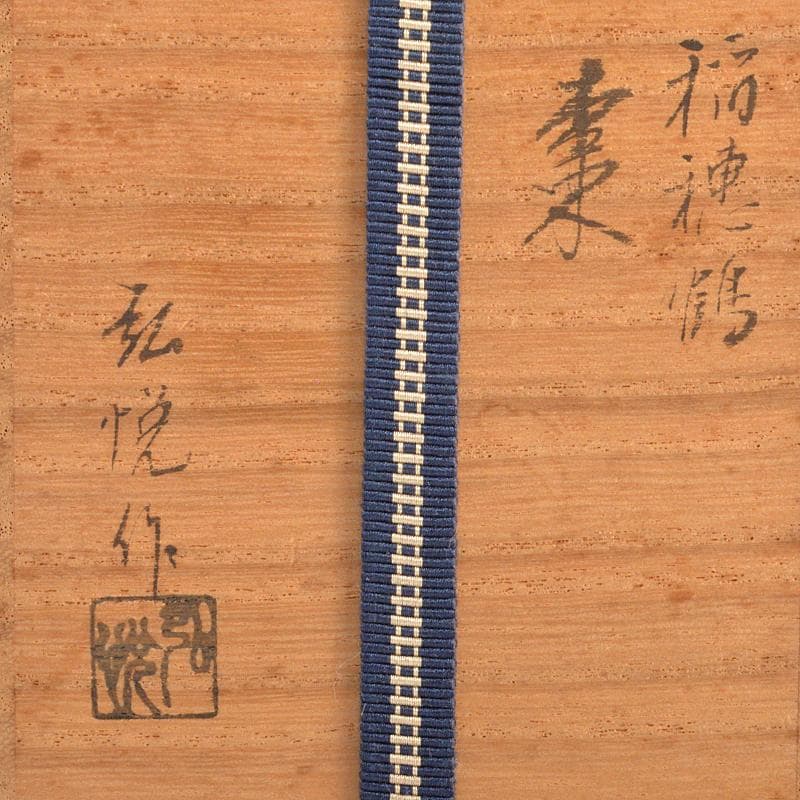 稲穂鶴
棗
弘悦作
弘悦